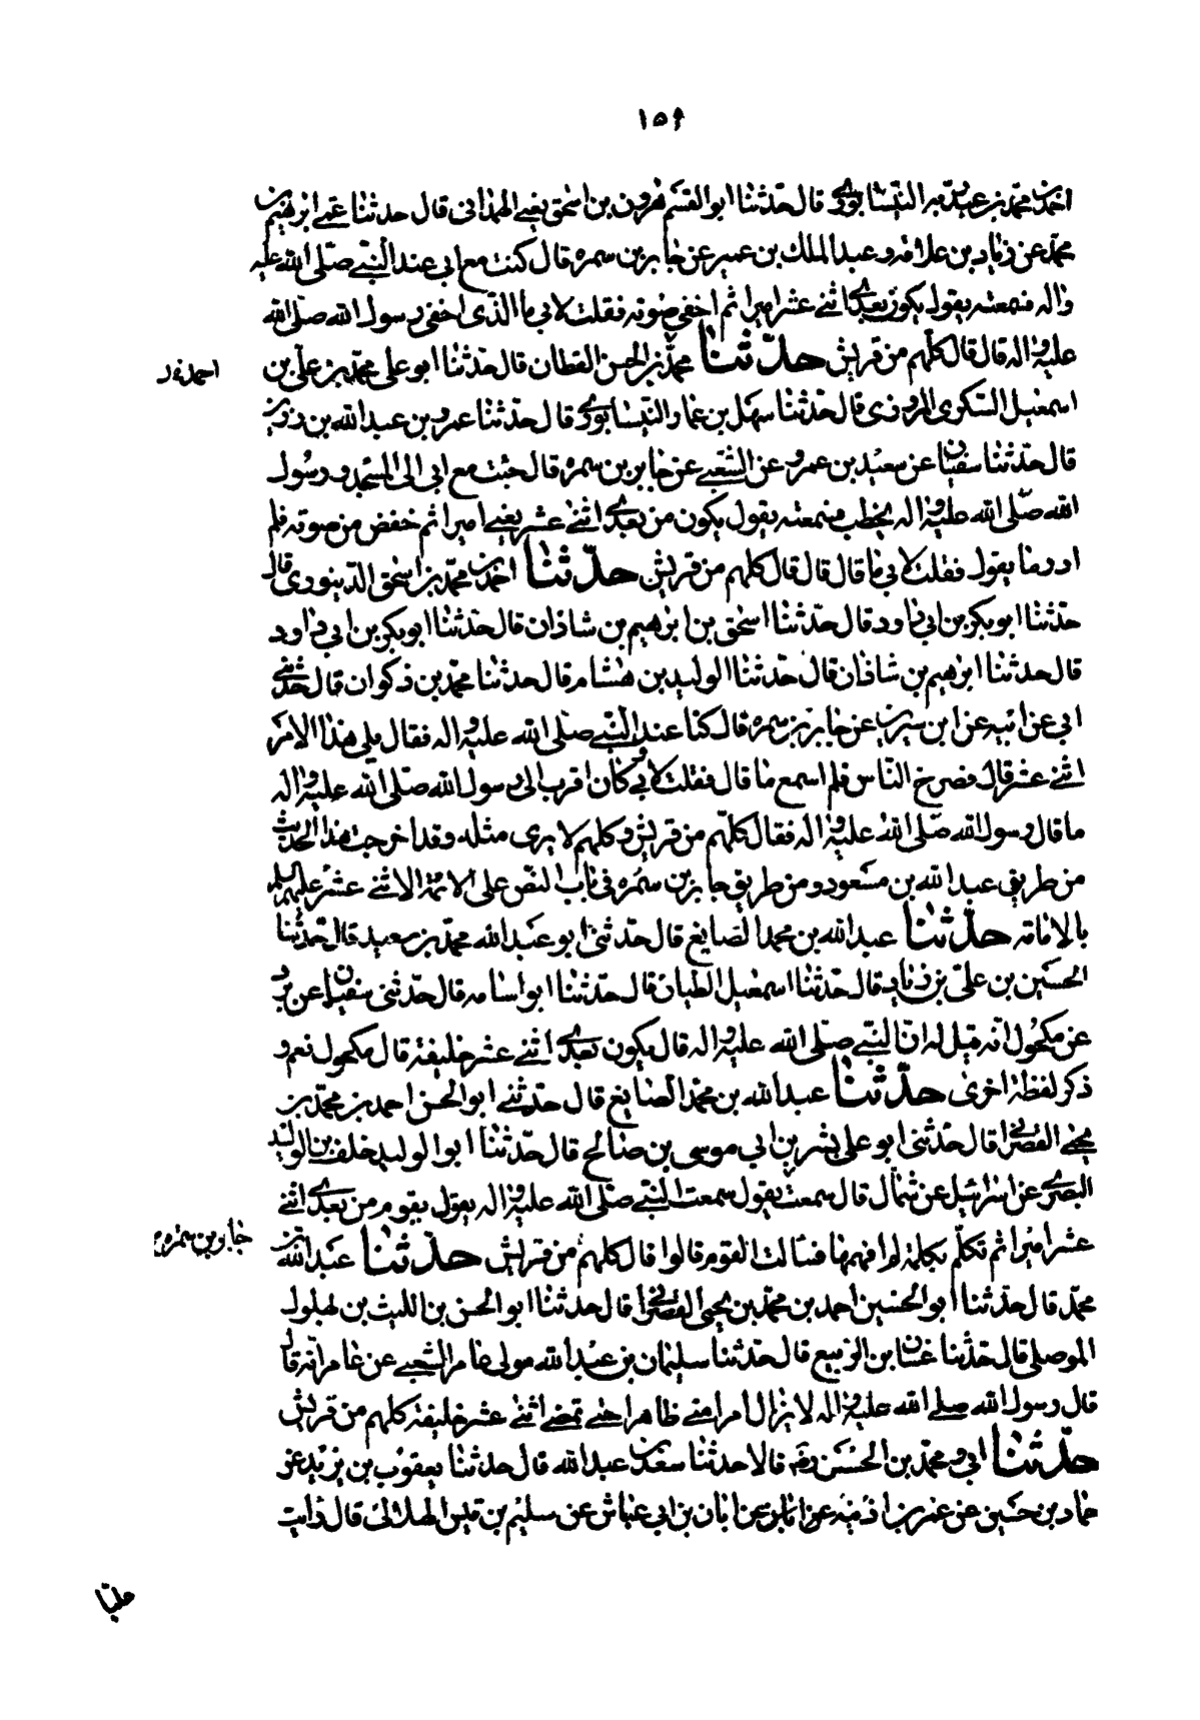 ١٥٩
احمد بن محمد بن عبدربه النيسابوري قال حدثنا ابو القسم هرون بن اسحق يعني الهمداني قال حدثنا عمي ابرهيم بن
محمد عن زياد بن علاقه و عبد الملك بن عمير عن جابر بن سمره قال كنت مع ابي عند النبي صلى الله عليه
واله فسمعته يقول يكون بعدي اثني عشر اميرا ثم اخفي صوته فقلت لابي ما الذي اخفى رسول الله صلى الله
عليه واله قال قال كلهم من قريش حدثنا محمد بن الحسن القطان قال حدثنا ابو على محمد بن على بن
اسمعيل السكرى المروزى قال حدثنا سهل بن عمار النيسابوري قال حدثنا عمرو بن عبد الله بن رزين
قال حدثنا سفيان عن سعيد بن عمرو عن الشعبي عن جابر بن سمره قال جئت مع ابي الى المسجد و رسول
الله صلى الله عليه واله يخطب فسمعته يقول يكون من بعدي اثني عشر يعني اميرا ثم خفض من صوته فلم
ادر ما يقول فقلت لابي ما قال قال قال كلهم من قريش حدثنا احمد بن محمد بن اسحق الدينورى قال
حدثنا ابو بكر بن ابي داود قال حدثنا اسحق بن ابرهيم بن شاذان قال حدثنا ابو بكر بن ابي داود
قال حدثنا ابرهيم بن شاذان قال حدثنا الوليد بن هشام قال حدثنا محمد بن ذكوان قال حدثني
ابي عن ابيه عن ابن سيرين عن جابر بن سمره قال كنا عند النبي صلى الله عليه واله فقال يلي هذا الامر
اثني عشر قال فصرخ الناس فلم اسمع ما قال فقلت لابي و كان اقرب الى رسول الله صلى الله عليه واله
ما قال رسول الله صلى الله عليه واله فقال كلهم من قريش و كلهم لا يرى مثله وقد اخرجت هذا الحديث
من طريق عبد الله بن مسعود و من طريق جابر بن سمره في باب النص على الائمة الاثني عشر عليهم السلم
بالامامة حدثنا عبد الله بن محمد الصايغ قال حدثني ابو عبد الله محمد بن سعيد قال حدثنا
الحسين بن علي بن زياد قال حدثنا اسمعيل الطيان قال حدثنا ابو اسامه قال حدثنى سفيان عن برد
عن مكحول انه قيل له ان النبي صلى الله عليه واله قال يكون بعدي اثني عشر خليفة قال مكحول نعم و
ذكر لفظة اخرى حدثنا عبد الله بن محمد الصايغ قال حدثني ابو الحسن احمد بن محمد بن
يحيى القصراني قال حدثنى ابو على بشر بن ابي موسى بن صالح قال حدثنا ابو الوليد خلف بن الوليد
البصري عن اسرائيل عن سماك قال سمعت يقول سمعت النبي صلى الله عليه واله يقول يقوم من بعدي اثني
عشر اميرا ثم تكلم بكلمة لم افهمها فسالت القوم قالوا قال كلهم من قريش حدثنا عبد الله بن
محمد قال حدثنا ابو الحسين احمد بن محمد بن يحيى القصراني قال حدثنا ابو الحسن بن الليث بن بهلول
الموصلي قال حدثنا غسان بن الربيع قال حدثنا سليمان بن عبد الله مولى عامر الشعبي عن عامر انه قال
قال رسول الله صلى الله عليه واله لا يزال امر امتي ظاهرا حتى تمضي اثني عشر خليفة كلهم من قريش
حدثنا ابي و محمد بن الحسن رضه قالا حدثنا سعد بن عبد الله قال حدثنا يعقوب بن يزيد عن
حماد بن عيسى عن عمر بن اذينه عن ابان بن ابي عياش عن سليم بن قيس الهلالي قال رايت
جابر بن سمره
عليا